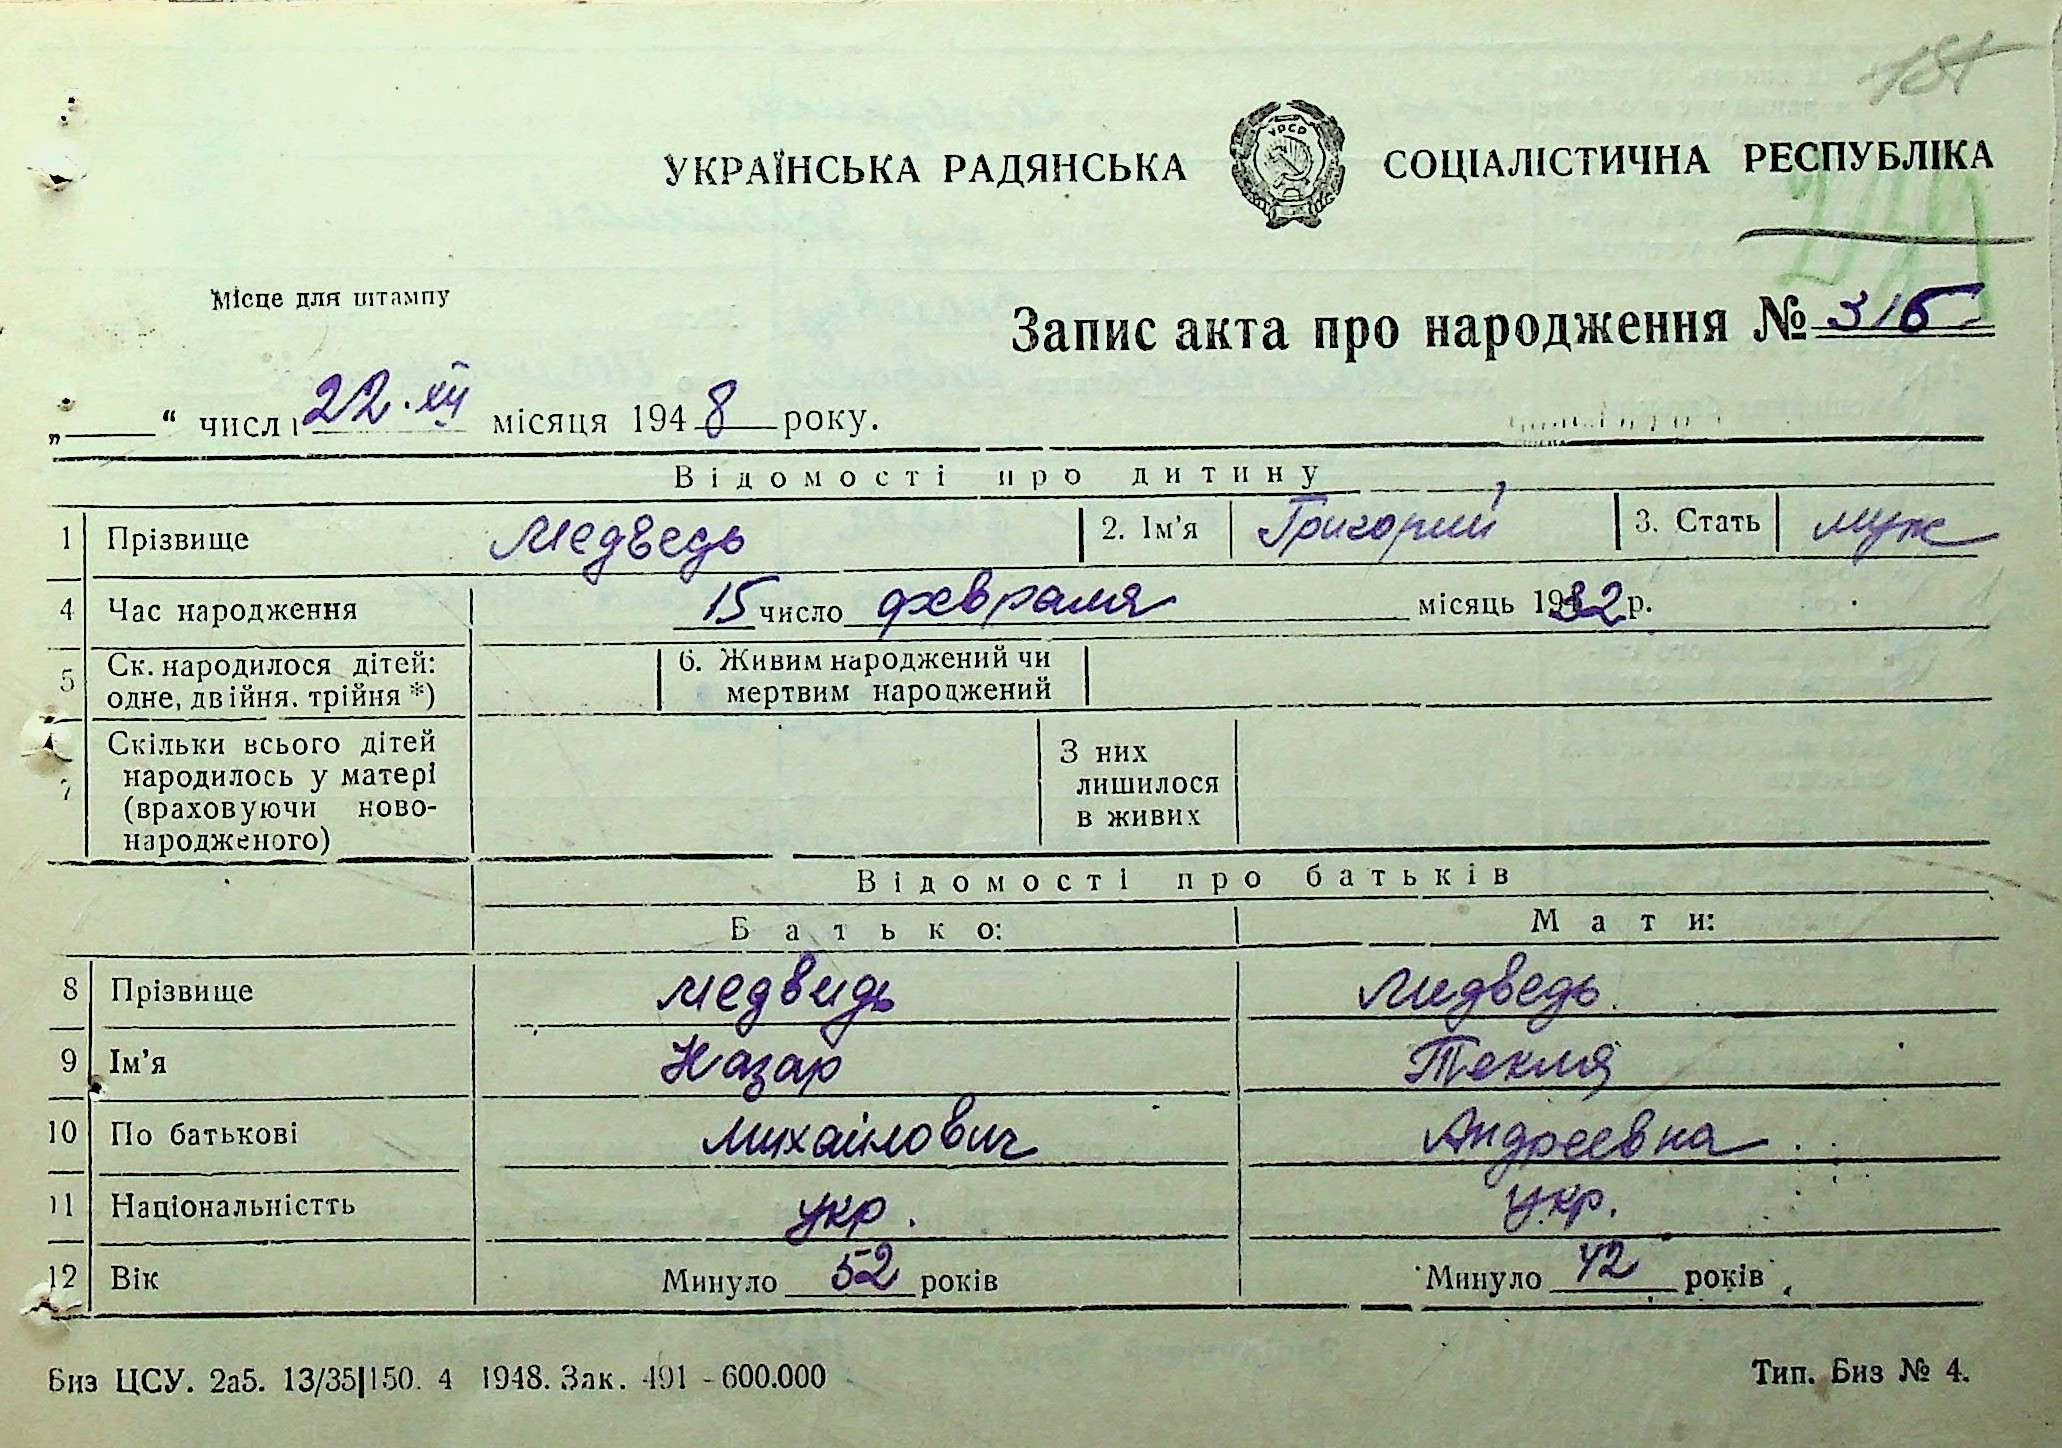 УКРАЇНСЬКА РАДЯНСЬКА УРСР СОЦІАЛІСТИЧНА РЕСПУБЛІКА
Місце для штампу
Запис акта про народження № 316
„ “ числ 22.XII місяця 1948 року.
Відомості про дитину
1 Прізвище Медведь 2. Ім'я Григорий 3. Стать муж
4 Час народження 15 число февраля місяць 1932 р.
5 Ск. народилося дітей: 6. Живим народжений чи
одне, двійня. трійня *) мертвим народжений
7 Скільки всього дітей З них
народилось у матері лишилося
(враховуючи ново- в живих
народженого)
Відомості про батьків
Батько: Мати:
8 Прізвище Медведь Медведь
9 Ім'я Назар Текля
10 По батькові Михайлович Андреевна
11 Національністть укр. укр.
12 Вік Минуло 52 років Минуло 42 років
Биз ЦСУ. 2а5. 13/35|150. 4 1948. Зак. 491 - 600.000 Тип. Биз № 4.